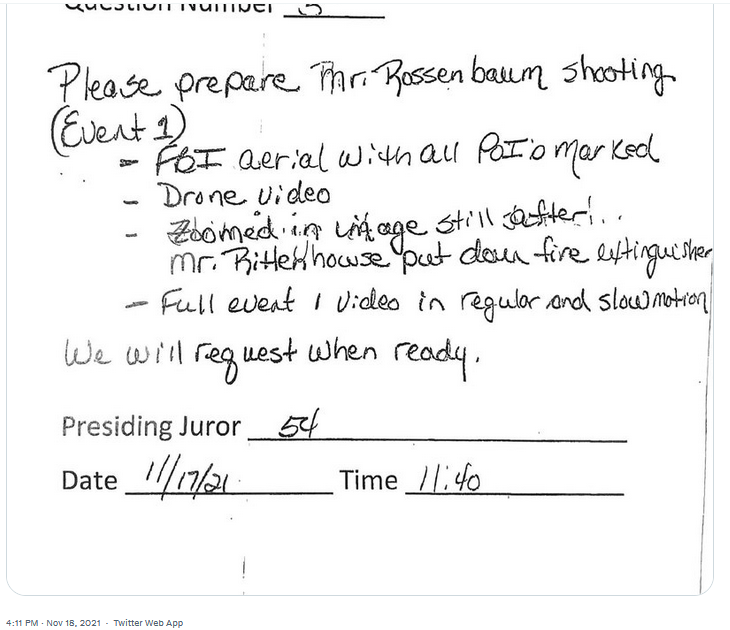 Question Number 5
Please prepare Mr. Rossenbaum shooting
(Event 1)
- FBI aerial with all PoI's marked
- Drone video
- Zoomed in image still after
Mr. Rittehhouse put down fire extinguisher
- Full event 1 video in regular and slow motion
We will request when ready.
Presiding Juror 54
Date 11/17/21 Time 11:40
4:11 PM · Nov 18, 2021 · Twitter Web App